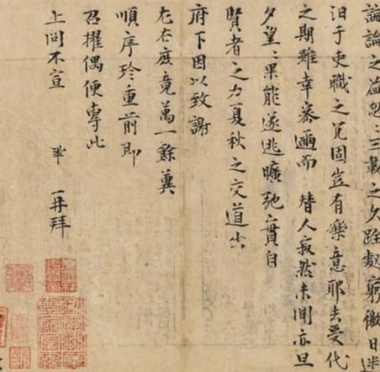 誨論之益忽忽三載之久跧處窮徼日迷
汩于吏職之冗固豈有樂意耶去受代
之期雖幸密邇而替人寂然未聞亦旦
夕望望果能遂逃曠弛之實自
賢者之力夏秋之交道出
府下因以致謝
左右庶竟萬一餘冀
順序珍重前即
召擢偶便專此
上問不宣 鞏 再拜